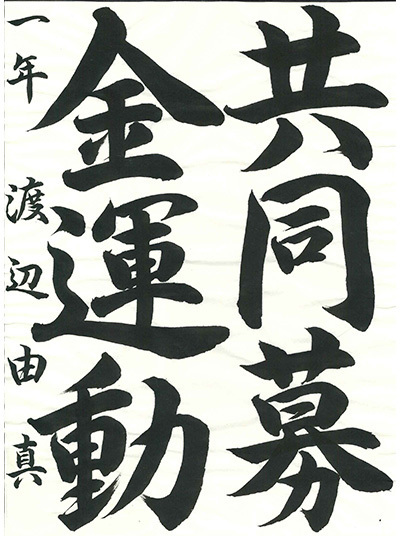 共同募
金運動
一年 渡辺由真